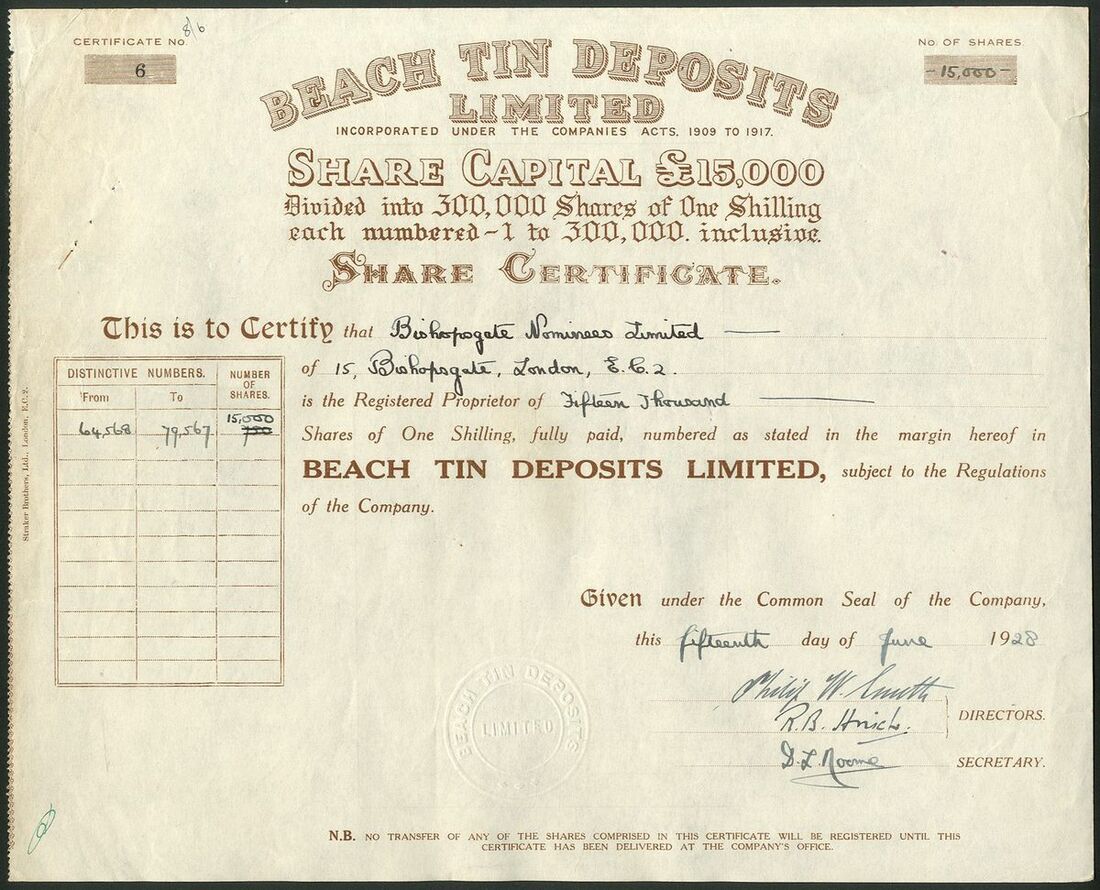 8/6
CERTIFICATE No.
6
No. OF SHARES.
-15,000-
BEACH TIN DEPOSITS
LIMITED
INCORPORATED UNDER THE COMPANIES ACTS, 1909 TO 1917.
SHARE CAPITAL £15,000
Divided into 300,000 Shares of One Shilling
each numbered - 1 to 300,000. inclusive.
SHARE CERTIFICATE.
This is to Certify that Bishopsgate Nominees Limited
of 15, Bishopsgate, London, E.C.2.
is the Registered Proprietor of Fifteen Thousand
Shares of One Shilling, fully paid, numbered as stated in the margin hereof in
BEACH TIN DEPOSITS LIMITED, subject to the Regulations
of the Company.
DISTINCTIVE NUMBERS. NUMBER OF SHARES.
From To
15,000
64,568 79,567 750
Straker Brothers, Ltd., London, E.C.2.
Given under the Common Seal of the Company,
this fifteenth day of June 1928
Philip W. Smith
R.B.
DIRECTORS.
D.L. SECRETARY.
BEACH TIN DEPOSITS
LIMITED
N.B. NO TRANSFER OF ANY OF THE SHARES COMPRISED IN THIS CERTIFICATE WILL BE REGISTERED UNTIL THIS
CERTIFICATE HAS BEEN DELIVERED AT THE COMPANY'S OFFICE.